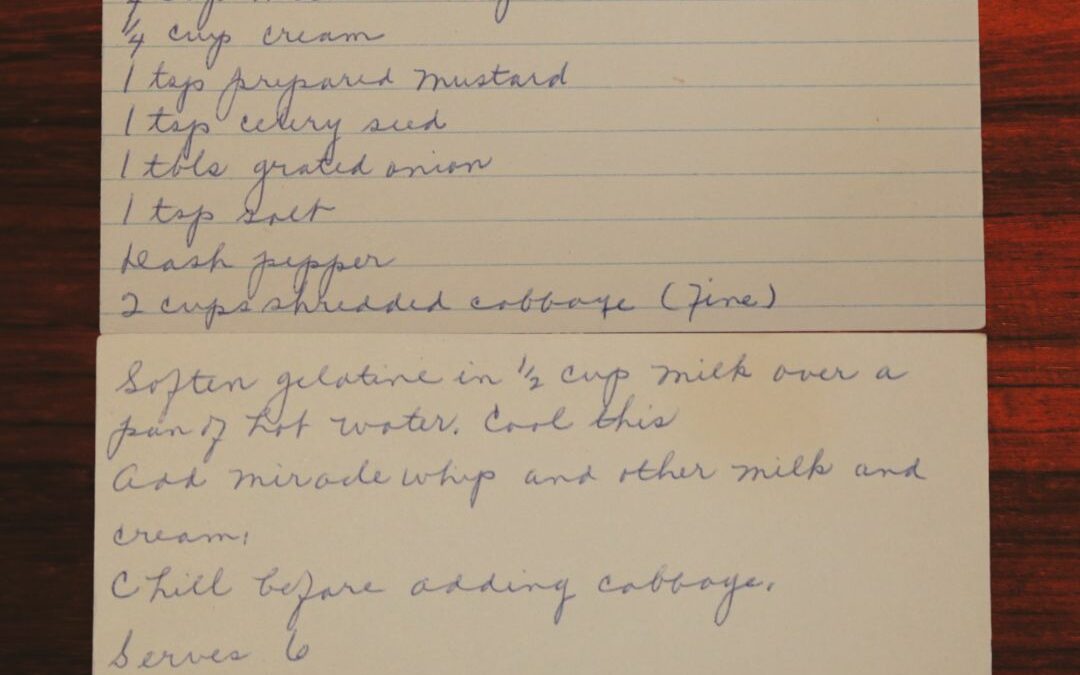 ¼ cup cream
1 tsp prepared mustard
1 tsp celery seed
1 tbls grated onion
1 tsp salt
Dash pepper
2 cups shredded cabbage (fine)
Soften gelatine in ½ cup milk over a
pan of hot water. Cool this
Add miracle whip and other milk and
cream.
Chill before adding cabbage.
Serves 6